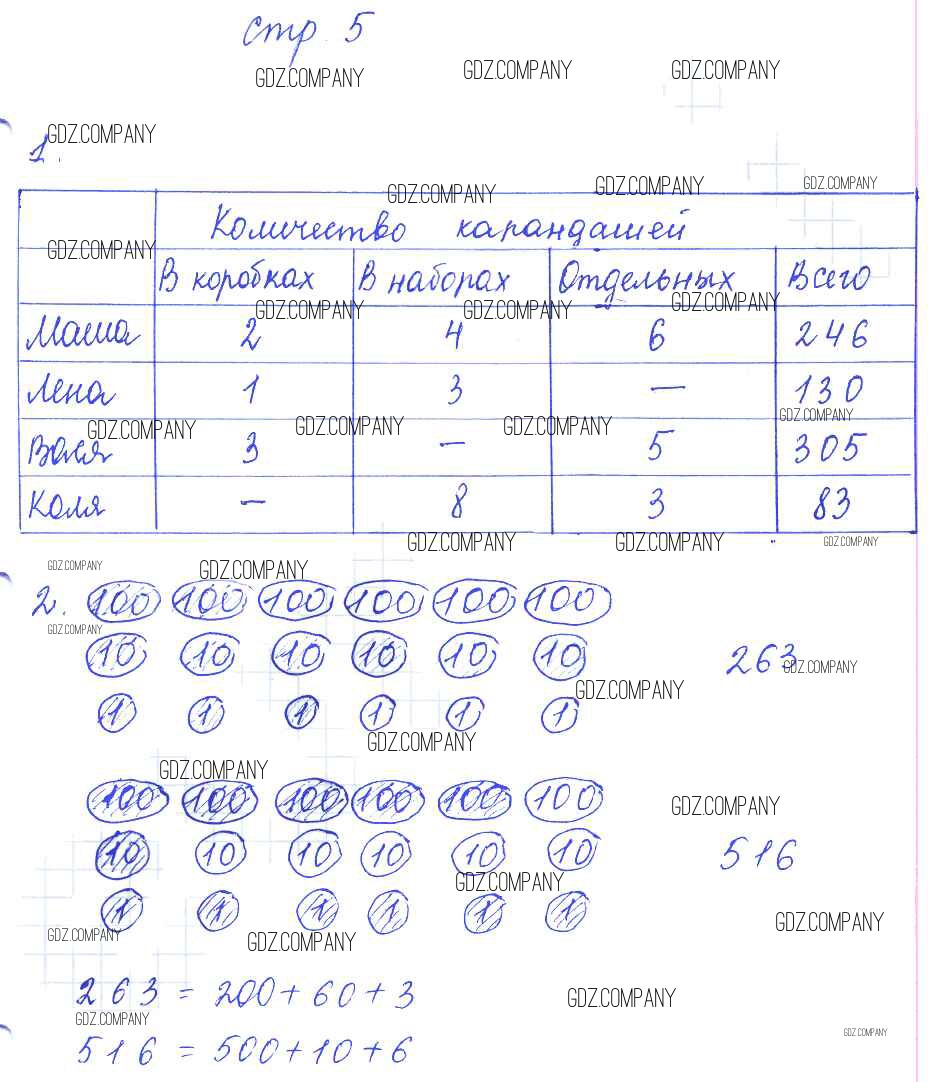 стр. 5
GDZ.COMPANY GDZ.COMPANY GDZ.COMPANY
GDZ.COMPANY
1.
GDZ.COMPANY GDZ.COMPANY GDZ.COMPANY
Количество карандашей
GDZ.COMPANY
В коробках В наборах Отдельных Всего
GDZ.COMPANY GDZ.COMPANY GDZ.COMPANY
Маша 2 4 6 246
Лена 1 3 — 130
GDZ.COMPANY GDZ.COMPANY GDZ.COMPANY GDZ.COMPANY
Вася 3 — 5 305
Коля — 8 3 83
GDZ.COMPANY GDZ.COMPANY GDZ.COMPANY
GDZ.COMPANY GDZ.COMPANY
2. 100 100 100 100 100 100
GDZ.COMPANY
10 10 10 10 10 10 263
GDZ.COMPANY
GDZ.COMPANY
1 1 1 1 1 1
GDZ.COMPANY
GDZ.COMPANY
100 100 100 100 100 100
GDZ.COMPANY
10 10 10 10 10 10 516
GDZ.COMPANY
1 1 1 1 1 1
GDZ.COMPANY
GDZ.COMPANY GDZ.COMPANY
263 = 200 + 60 + 3
GDZ.COMPANY
GDZ.COMPANY GDZ.COMPANY
516 = 500 + 10 + 6